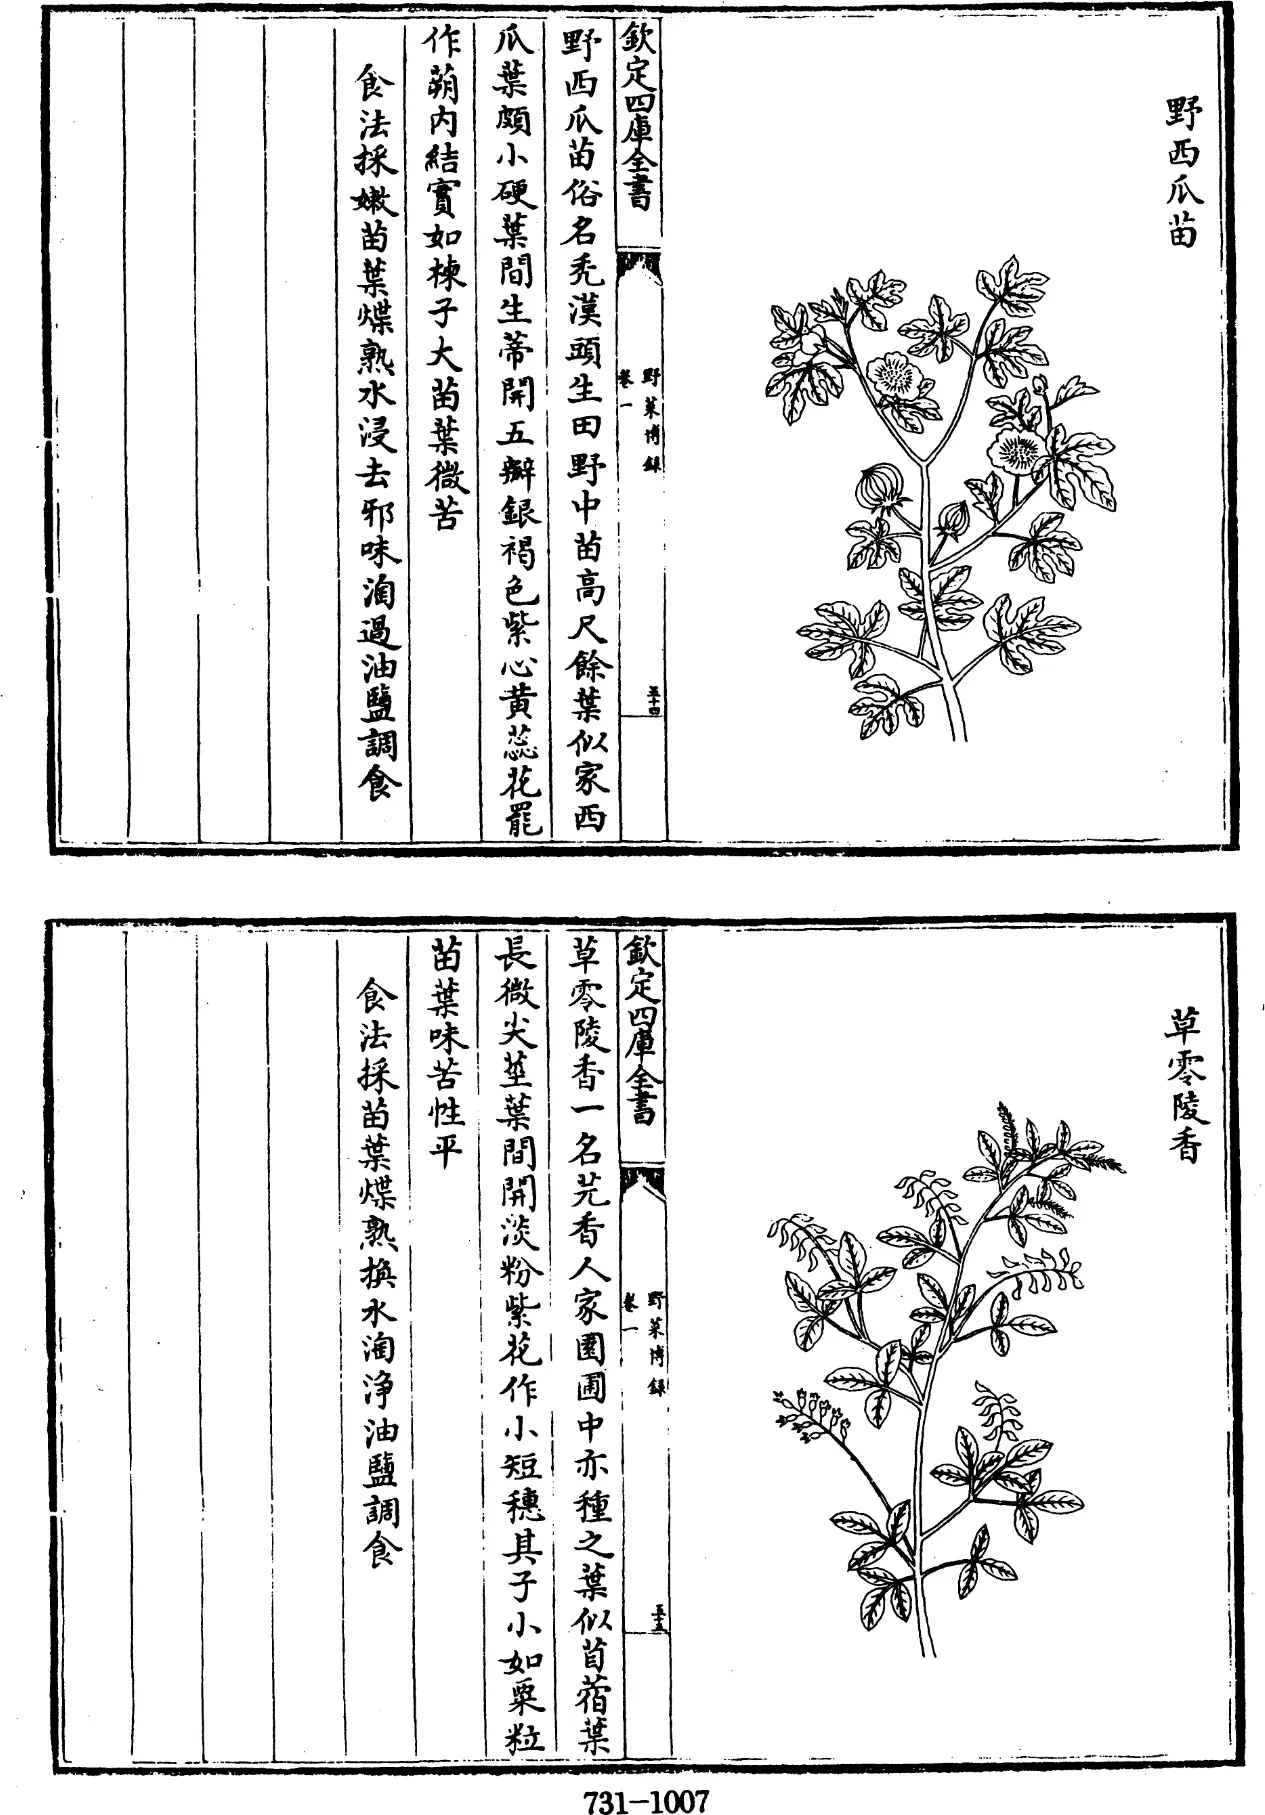 野西瓜苗
欽定四庫全書
野菜博錄
卷一
五十四
野西瓜苗俗名禿漢頭生田野中苗高尺餘葉似家西
瓜葉頗小硬葉間生蒂開五瓣銀褐色紫心黄蕊花罷
作蒴内結實如楝子大苗葉微苦
食法採嫩苗葉煠熟水浸去邪味淘過油鹽調食
草零陵香
欽定四庫全書
野菜博錄
卷一
五十五
草零陵香一名芫香人家園圃中亦種之葉似苜蓿葉
長微尖莖葉間開淡粉紫花作小短穗其子小如粟粒
苗葉味苦性平
食法採苗葉煠熟換水淘浄油鹽調食
731-1007